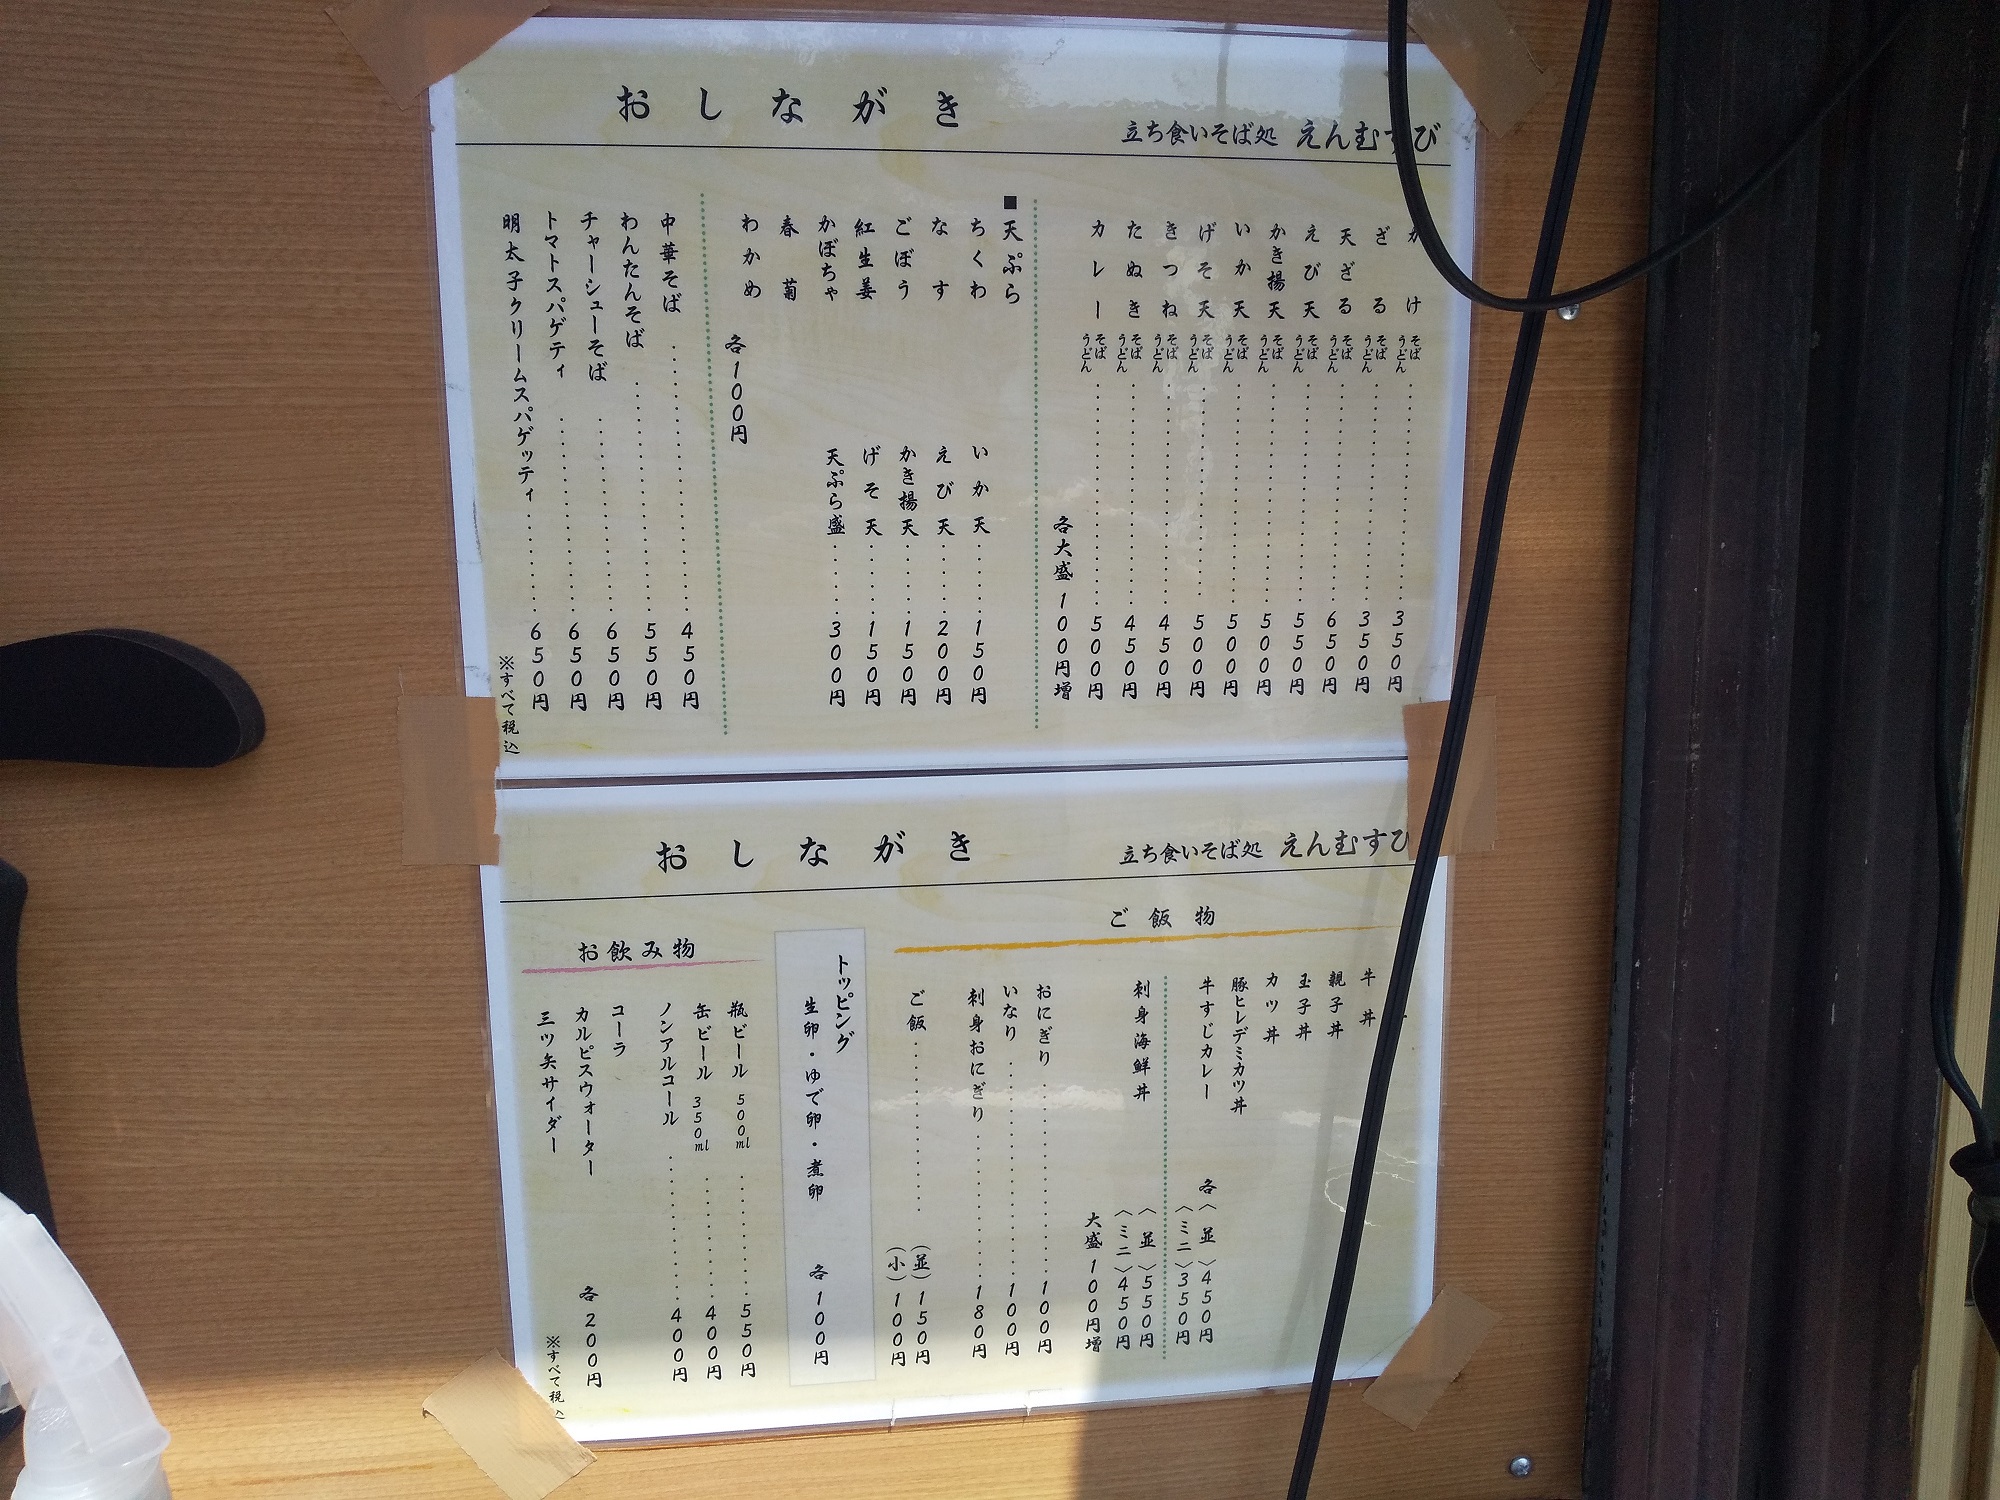 おしながき
立ち食いそば処 えんむすび
かけ そば うどん 350円
ざる そば うどん 350円
天ざる そば うどん 650円
えび天 そば うどん 550円
かき揚天 そば うどん 500円
いか天 そば うどん 500円
げそ天 そば うどん 500円
きつね そば うどん 450円
たぬき そば うどん 450円
カレー そば うどん 500円
各大盛100円増
■天ぷら
ちくわ
なす
ごぼう
紅生姜
かぼちゃ
春菊
わかめ
各100円
いか天 150円
えび天 200円
かき揚天 150円
げそ天 150円
天ぷら盛 300円
中華そば 450円
わんたんそば 550円
チャーシューそば 650円
トマトスパゲティ 650円
明太子クリームスパゲッティ 650円
※すべて税込
おしながき
立ち食いそば処 えんむすび
ご飯物
牛丼
親子丼
玉子丼
カツ丼
豚ヒレデミカツ丼
牛すじカレー
各〈並〉450円
〈ミニ〉350円
刺身海鮮丼
〈並〉550円
〈ミニ〉450円
大盛100円増
おにぎり 100円
いなり 100円
刺身おにぎり 180円
ご飯 (並)150円
(小)100円
トッピング
生卵・ゆで卵・煮卵 各100円
お飲み物
瓶ビール 500ml 550円
缶ビール 350ml 400円
ノンアルコール 400円
コーラ
カルピスウォーター
三ツ矢サイダー
各200円
※すべて税込